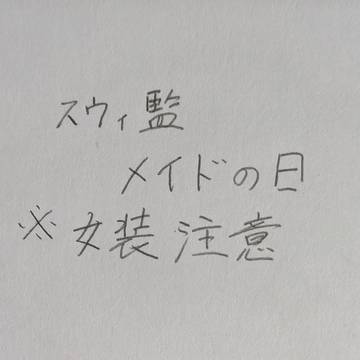 スウィ監
メイドの日
※女装注意